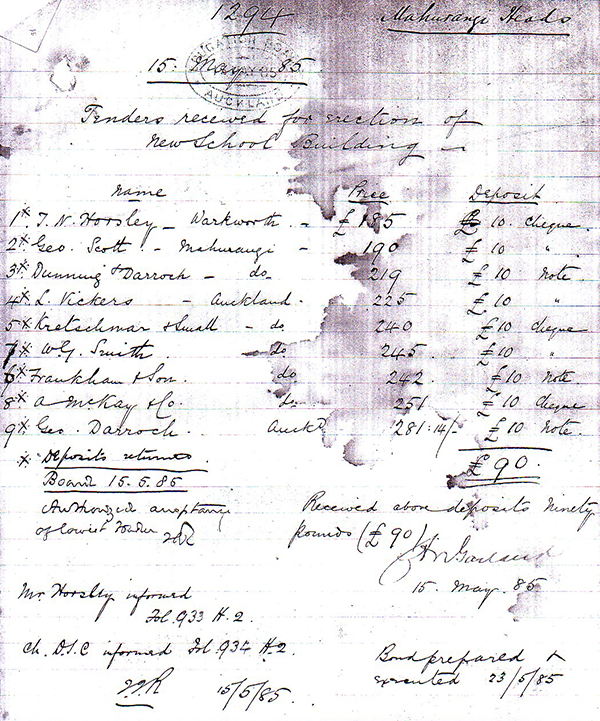 1294 Mahurangi Heads
AUCKLAND
15. May. 85
Tenders received for erection of
New School Building —
Name Price Deposit
1× T. N. Horsley — Warkworth. - £185 £10 Cheque.
2× Geo. Scott. - Mahurangi - 190 £10 "
3× Dunning & Darroch - do 219 £10 Note
4× L. Vickers - Auckland. 225 £10 "
5× Kretschmar & Small - do. 240 £10 Cheque
7× W.G. Smith. do. 245. £10 "
6× Frankham & Son. do 242. £10 Note.
8× A McKay & Co. do. 251 £10 Cheque
9× Geo. Darroch. Auckd. 281.14/- £10 Note.
× Deposits returned. £90.
Board 15.5.85
Authorized acceptance
of lowest Tender
Received above deposits Ninety
pounds (£90)
15. May. 85.
Mr Horsley informed
Fol. 933 H.2.
Ch. D.S.C informed Fol 934 H.2.
15/5/85.
Bond prepared &
executed 23/5/85